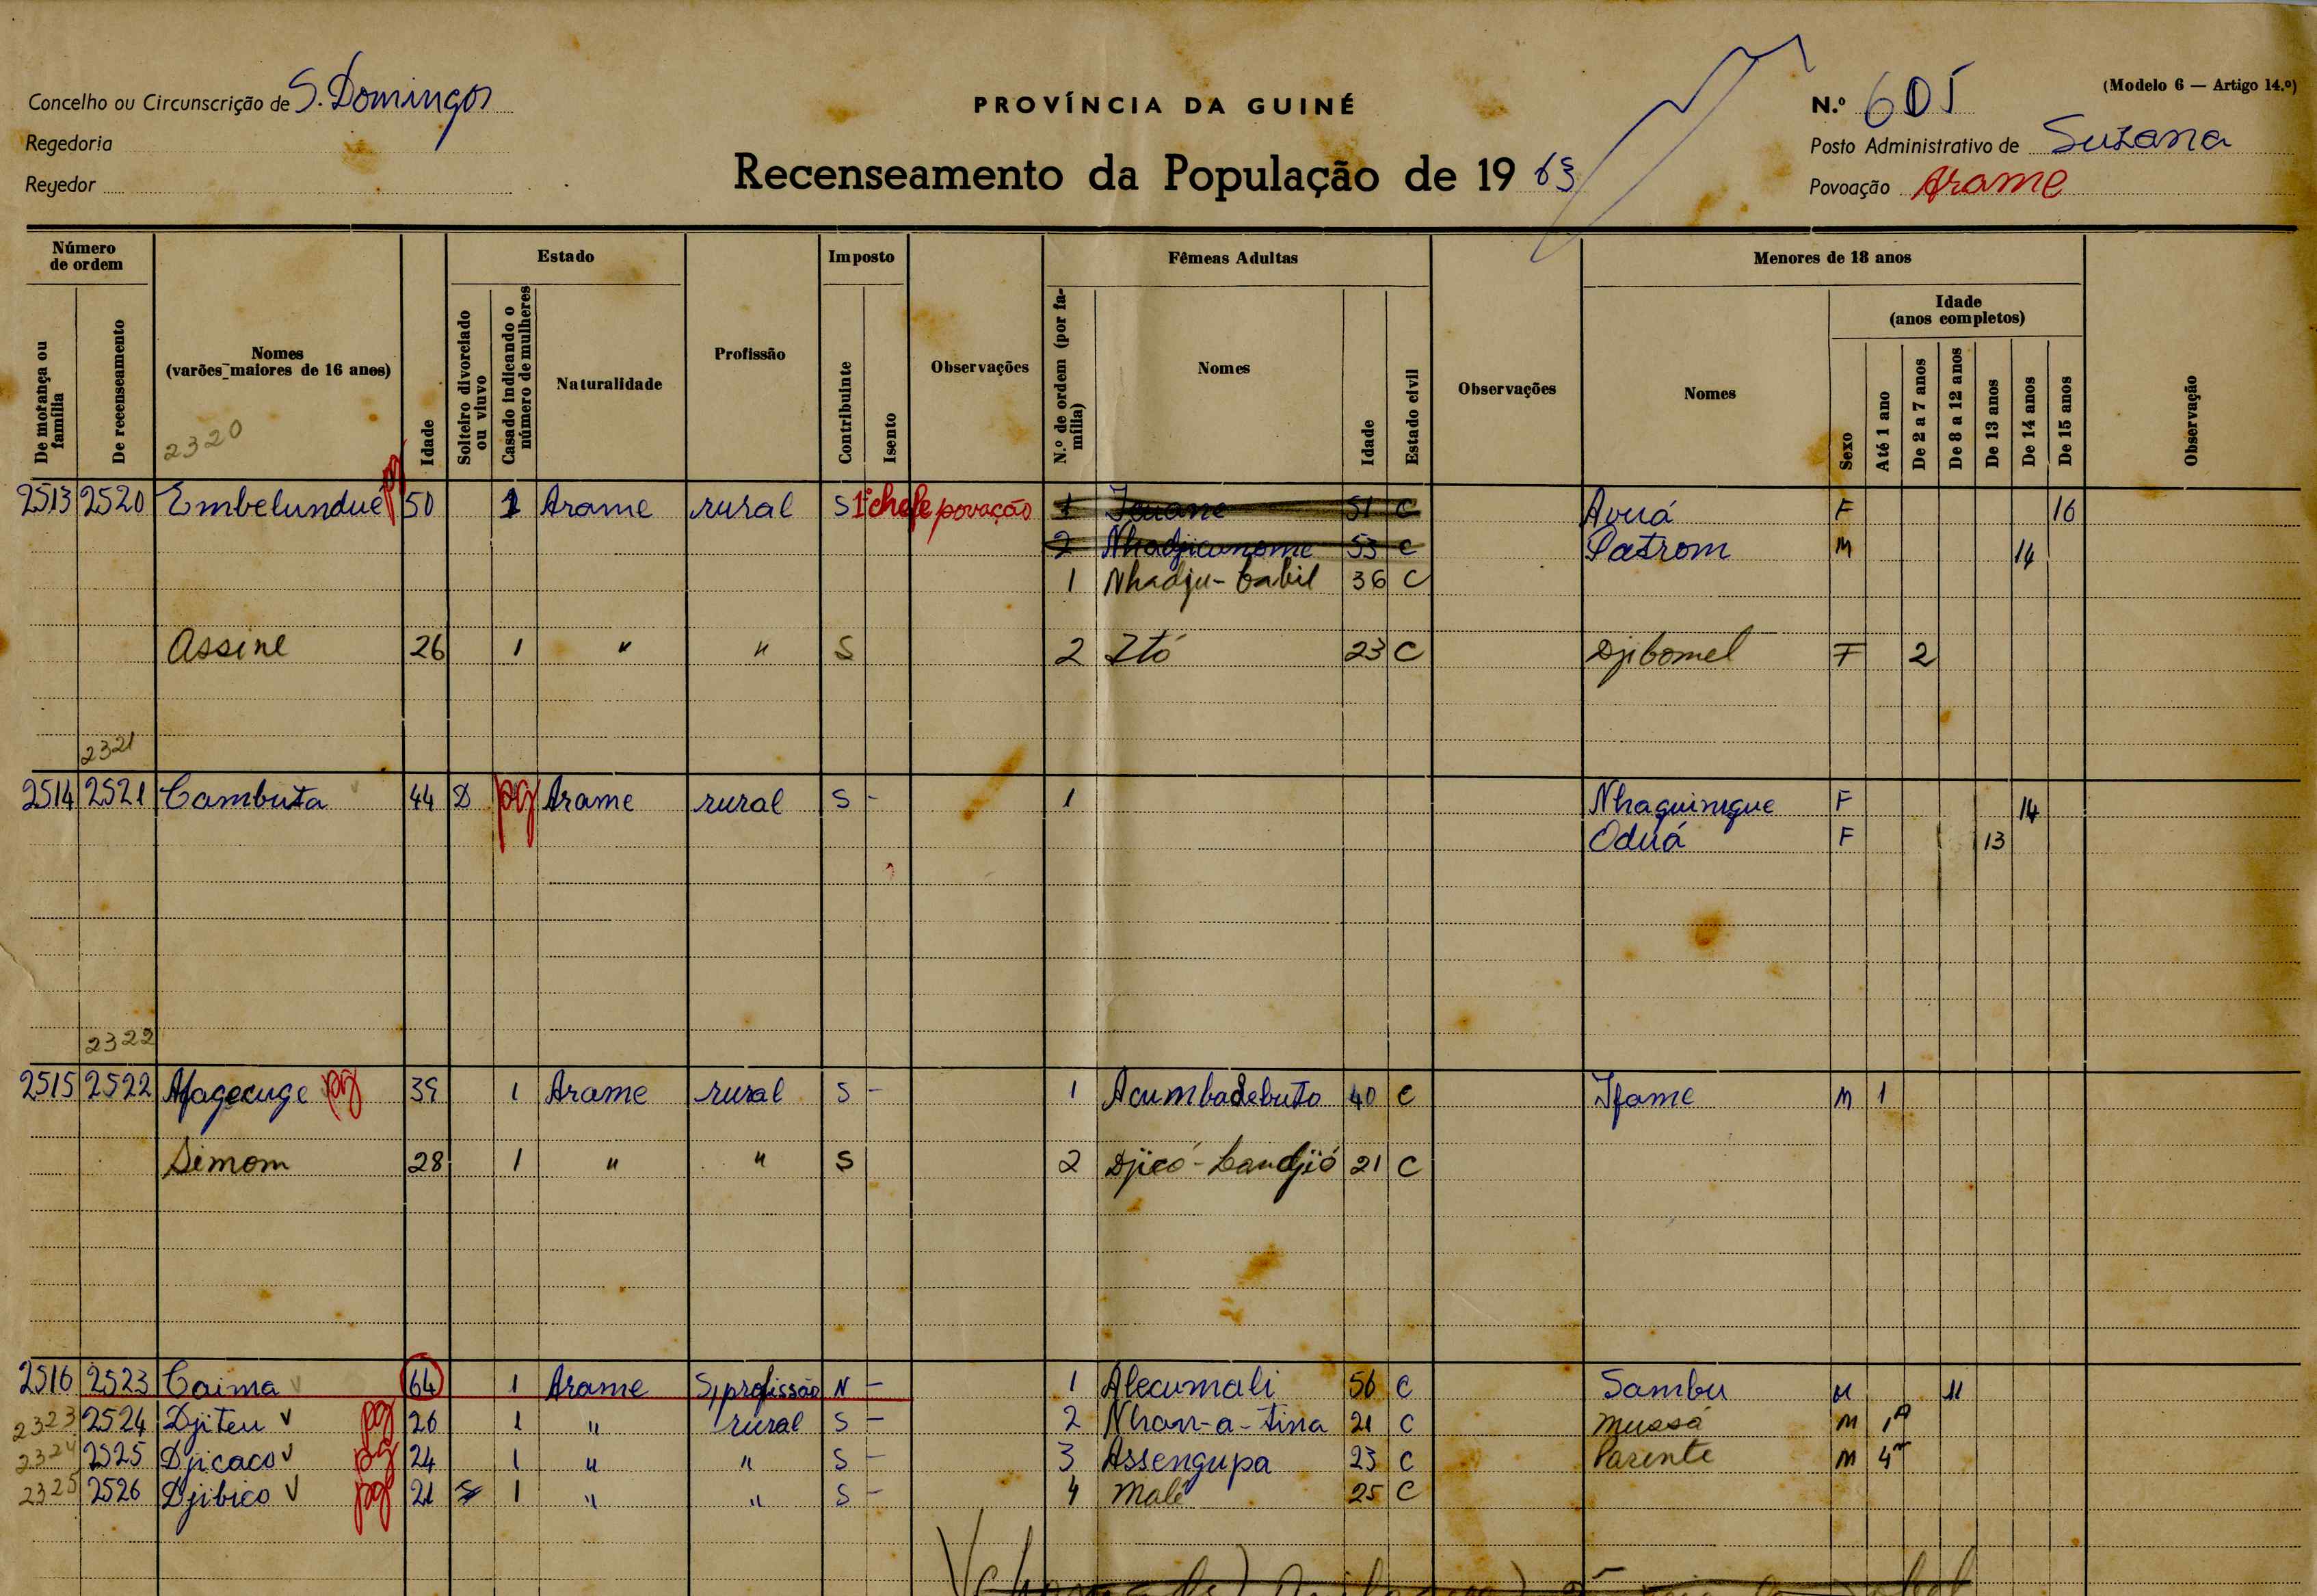 Concelho ou Circunscrição de S. Domingos
Regedoria
Regedor
PROVÍNCIA DA GUINÉ
Recenseamento da População de 19 63
(Modelo 6 — Artigo 14.º)
N.º 605
Posto Administrativo de Suzana
Povoação Arame
Número de ordem
De morança ou família
De recenseamento
Nomes (varões maiores de 16 anos)
2320
Idade
Estado
Solteiro divorciado ou viuvo
Casado indicando o número de mulheres
Naturalidade
Profissão
Imposto
Contribuinte
Isento
Observações
Fêmeas Adultas
N.º de ordem (por família)
Nomes
Idade
Estado civil
Observações
Menores de 18 anos
Nomes
Sexo
Idade (anos completos)
Até 1 ano
De 2 a 7 anos
De 8 a 12 anos
De 13 anos
De 14 anos
De 15 anos
Observação
2513 2520 Embelundué pg 50 1 Arame rural S 1º chefe povoação 1 51 C Avuá F 16
2 Nhadjicunome 53 C Patrom M 14
1 Nhadju-babil 36 C
Assine 26 1 " " S 2 Itó 23 C Djibomel F 2
2321
2514 2521 Cambuta 44 D pg Arame rural S - 1 Nhaguinigue F 14
Oduá F 13
2322
2515 2522 Afagecuge pg 39 1 Arame rural S - 1 Acumbadebuto 40 C Ifame M 1
Simom 28 1 " " S 2 Djicó-bandjió 21 C
2516 2523 Caima 64 1 Arame S/profissão N - 1 Alecumali 56 C Sambu M 11
2323 2524 Djiteu v pg 26 1 " rural S - 2 Nhan-a-tina 21 C Mussá M 1A
2324 2525 Djicaco v pg 24 1 " " S - 3 Assengupa 23 C Parente M 4m
2325 2526 Djibico v pg 21 S 1 " " S - 4 Malé 25 C